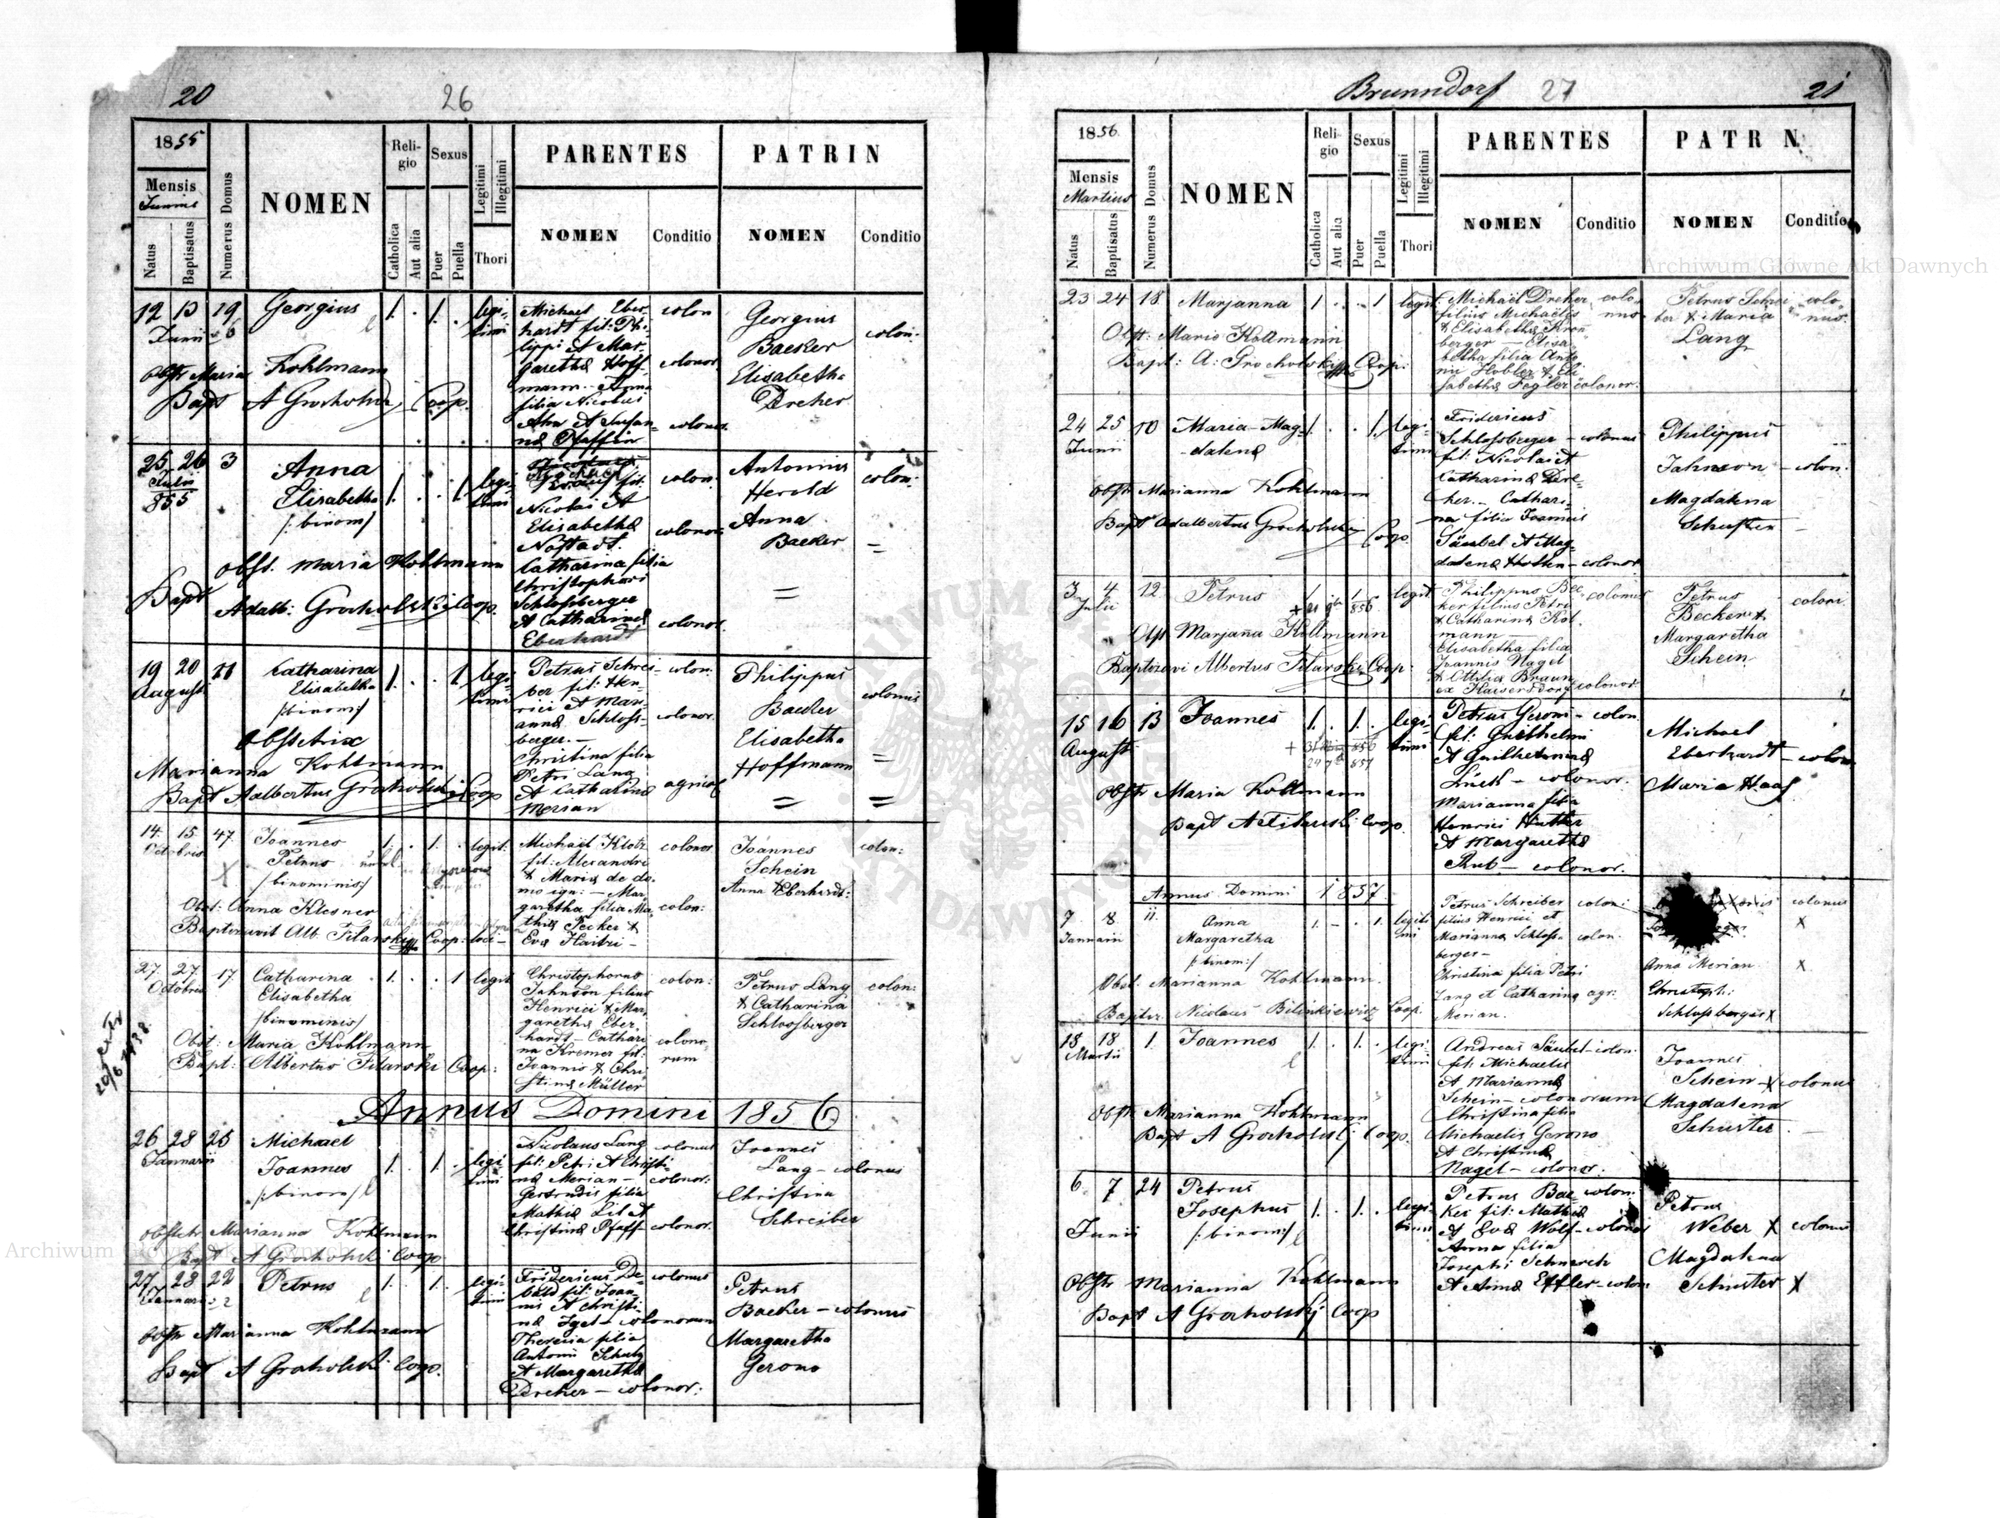 20
26
1855
Mensis
Junius
Natus
Baptisatus
Numerus Domus
NOMEN
Religio
Catholica
Aut alia
Sexus
Puer
Puella
Legitimi
Illegitimi
Thori
PARENTES
NOMEN
Conditio
PATRIN
NOMEN
Conditio
12 13 19 Georgius 1. . 1. . legi-
timi
Junii
Michael Eber-
hardt fil: Phi-
lippi et Mar-
garetha Hoff-
mann - Anna
filia Nicolai
et Susan-
na Pfaff
colon
colonor.
colonor.
Georgius
Baeker
Elisabetha
Dreher
colon:
Obstr Maria Kohlmann
Bapt A Grocholski Coop.
25 26 3 Anna
Elisabetha
/:binom:/
Julii
855
1. . . 1 legi-
timi
fil:
Nicolai et
Elisabetha
Catharina filia
Christophori
Schlossberger
et Catharina
Eberhardt
colon:
colonor.
colonor.
Antonius
Herold
Anna
Baeker
colon:
=
Obst. Maria Kohlmann
Bapt Adalb: Grocholski Coop.
19 20 21 Catharina
Elisabetha
/:binom:/
August
1. . . 1 legi-
timi
Petrus Schrei-
ber fil: Hen-
rici et Mari-
anna Schloss-
berger. -
Christina filia
Petri Lang
et Catharina
Merian
colon.
colonor.
agricol
Philippus
Baeker
Elisabetha
Hoffmann
colonus
=
Obstetrix
Marianna Kohlmann
Bapt Adalbertus Grocholski Coop
14 15 47 Joannes
Petrus
/binominis:/
Octobris
1. . 1. . legit:
Michaël Klotz
fil: Alexandri
& Maria de do-
mo - Mar-
garetha filia Ma-
thia Pecker &
Eva
colonor
colon:
Joannes
Schein
Anna Eberhardt:
colon:
Obst: Anna Klesner
Baptizavit Alb. Filarski Coop: loci -
27 27 17 Catharina
Elisabetha
/binominis/
Octobris
1. . . 1 legit
Christophorus
Johnson filius
Henrici & Mar-
garetha Eber-
hardt - Cathari
na Kremer fil:
Joannis & Chri
stina Müller
colon:
colono-
rum
Petrus Lang
& Catharina
Schlossberger
colon:
Obst: Maria Kohlmann
Bapt: Albertus Filarski Coop:
Annus Domini 1856
26 28 25 Michael
Joannes
/:binom/
Januarii
1. . 1. . legi-
timi
Nicolaus Lang
fil: Petri et Christi-
na Merian -
Gertrudis filia
Mathia Lil et
Christina Pfaff
colonus
colonor:
colonor.
Joannes
Lang - colonus
Christina
Schreiber
Obstetr Marianna Kohlmann
Bapt A Grocholski Coop
27 28 22 Petrus 1. . 1. . legi-
timi
Januarii
Fridericus De-
bald fil: Joan-
nis et Christi-
na Igel - colonorum
Theresia filia
Antonii Schatz
et Margaretha
Dreher - colonor:
colonus
Petrus
Baeker - colonus
Margaretha
Gerono
Obstr Marianna Kohlmann
Bapt A Grocholski Coop.
Brunndorf
27
21
1856.
Mensis
Martius
Natus
Baptisatus
Numerus Domus
NOMEN
Religio
Catholica
Aut alia
Sexus
Puer
Puella
Legitimi
Illegitimi
Thori
PARENTES
NOMEN
Conditio
PATR N
NOMEN
Conditio
Archiwum Główne Akt Dawnych
23 24 18. Marjanna 1 . . 1 legit
Michaël Dreher
filius Michaëlis
& Elisabetha Kron
berger - Elisa
betha filia Anto
nii Hobler & Eli
sabetha Fogler colonor.
colo-
nus
Petrus Schrei
ber & Maria
Lang
colo-
nus.
Obst: Maria Kollmann
Bapt: A: Grocholski Coop:
24 25 10 Maria-Mag-
dalena
Junii
1. . . 1. legi-
timi
Fridericus
Schlossberger - colonus
fil: Nicolai et
Catharina Dre-
her. - Cathari-
na filia Joannis
Säubel et Mag-
dalena - colonor
Philippus
Johnson - colon.
Magdalena
Schuster -
Obstr Marianna Kohlmann
Bapt Adalbertus Grocholski Coop.
3 4 12 Petrus 1 . 1 . legit
Julii
856
Philippus Bec-
ker filius Petri
& Catharina Kol
mann -
Elisabetha filia
Joannis Nagel
& Ottilia Braun
ex Kaisersdorf colonor
colonus
Petrus
Becker &
Margaretha
Schein
coloni.
Obst Marjana Kollmann
Baptizavi Albertus Filarski Coop.
15 16 13 Joannes 1. . 1. . legi-
timi
August
Petrus Geroni - colon.
fil: Guilhelmi
et Guilhelmina
Lück - colonor.
Marianna filia
Henrici Hutter
et Margaretha
Rub - colonor.
Michael
Eberhardt - colon.
Maria Haas
Obstr Maria Kohlmann
Bapt A Filarski Coop.
Annus Domini 1857
7 8 11 Anna
Margaretha
/:binom:/
Januarii
1. - . 1. legiti
mi
Petrus Schreiber
filius Henrici et
Marianna Schloss-
berger -
Christina filia Petri
Lang et Catharina
Merian.
colon:
colon.
agr:
colonus
X
Anna Merian X
Christoph:
Schlossberger X
Obst. Marianna Kohlmann.
Baptiz. Nicolaus Bilinkiewicz Coop.
18 18 1. Joannes 1. . 1. . legi-
timi
Martii
Andreas Säubel - colon.
fil: Michaelis
et Marianna
Schein - colonorum
Christina filia
Michaelis Gerono
et Christina
Nagel - colonor.
Joannes
Schein - X colonus
Magdalena
Schuster -
Obstr Marianna Kohlmann
Bapt A Grocholski Coop.
6. 7 24 Petrus
Josephus
/:binom:/
Junii
1. . 1. . legi-
timi
Petrus Bae- colon.
ker fil: Mathia
et Eva Wolf - colonor
Anna filia
Josephi Schnerch
et Anna Effler - colon
Petrus
Weber X colonus
Magdalena
Schuster X
Obstr Marianna Kohlmann
Bapt A Grocholski Coop
Archiwum Główne Akt Dawnych